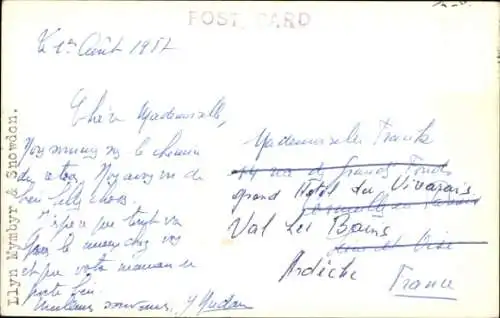 POST CARD
le 1er Août 1957
Chère Mademoiselle,
Nous sommes sur le chemin
du retour. Nous avons vu de
bien belles choses.
J'espère que tout va
pour le mieux chez vous
et que votre maman se
porte bien.
Meilleurs souvenirs,
Mademoiselle Franck
14 rue des Grands Fonds
Grand Hotel du Vivarais
Val les Bains
Seine et Oise
Ardèche
France
Llyn Mymbyr & Snowdon.